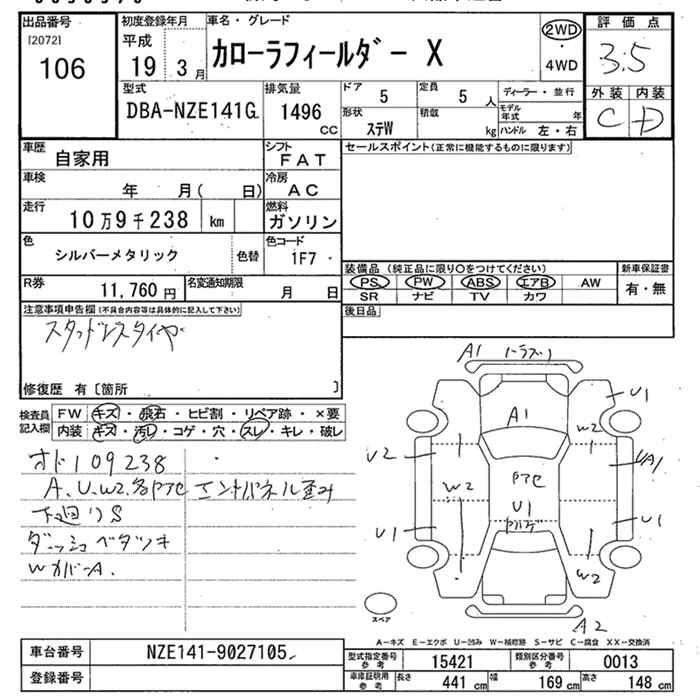 出品番号
[2072]
106
初度登録年月
平成
19 3月
車名・グレード
カローラフィールダー X
2WD
・
4WD
評価点
3.5
外装 内装
C D
型式
DBA-NZE141G
排気量
1496
CC
ドア
5
定員
5 人
ディーラー・並行
モデル年式 年
形状
ステW
積載
kg
ハンドル 左・右
車歴
自家用
シフト
FAT
セールスポイント(正常に機能するものに限ります)
車検
年 月( 日)
冷房
AC
走行
10万9千238 km
燃料
ガソリン
色
シルバーメタリック
色替
色コード
1F7
R券
11,760 円
名変通知期限
月 日
装備品 (純正品に限り○をつけてください)
新車保証書
PS PW ABS エアB AW
有・無
SR ナビ TV カワ
後日品
注意事項申告欄(不具合内容等は具体的に記入して下さい)
スタッドレスタイヤ
修復歴 有〔箇所 〕
検査員記入欄
FW キズ・飛石・ヒビ割・リペア跡・×要
内装 キズ・汚レ・コゲ・穴・スレ・キレ・破レ
オド109238
A、U、W2、各Pアセ エンドパネル歪み
下廻りS
ダッシュベタツキ
WカバーA.
A1
U1
A1
W2
U2
UA1
W2
Pアセ
U1
U1
U1
W2
A2
スペア
A-キズ E-エクボ U-凹み W-補修跡 S-サビ C-腐食 XX-交換済
車台番号
NZE141-9027105
登録番号
型式指定番号参考
15421
類別区分番号参考
0013
車庫証明用参考
長さ 441 cm
幅 169 cm
高さ 148 cm